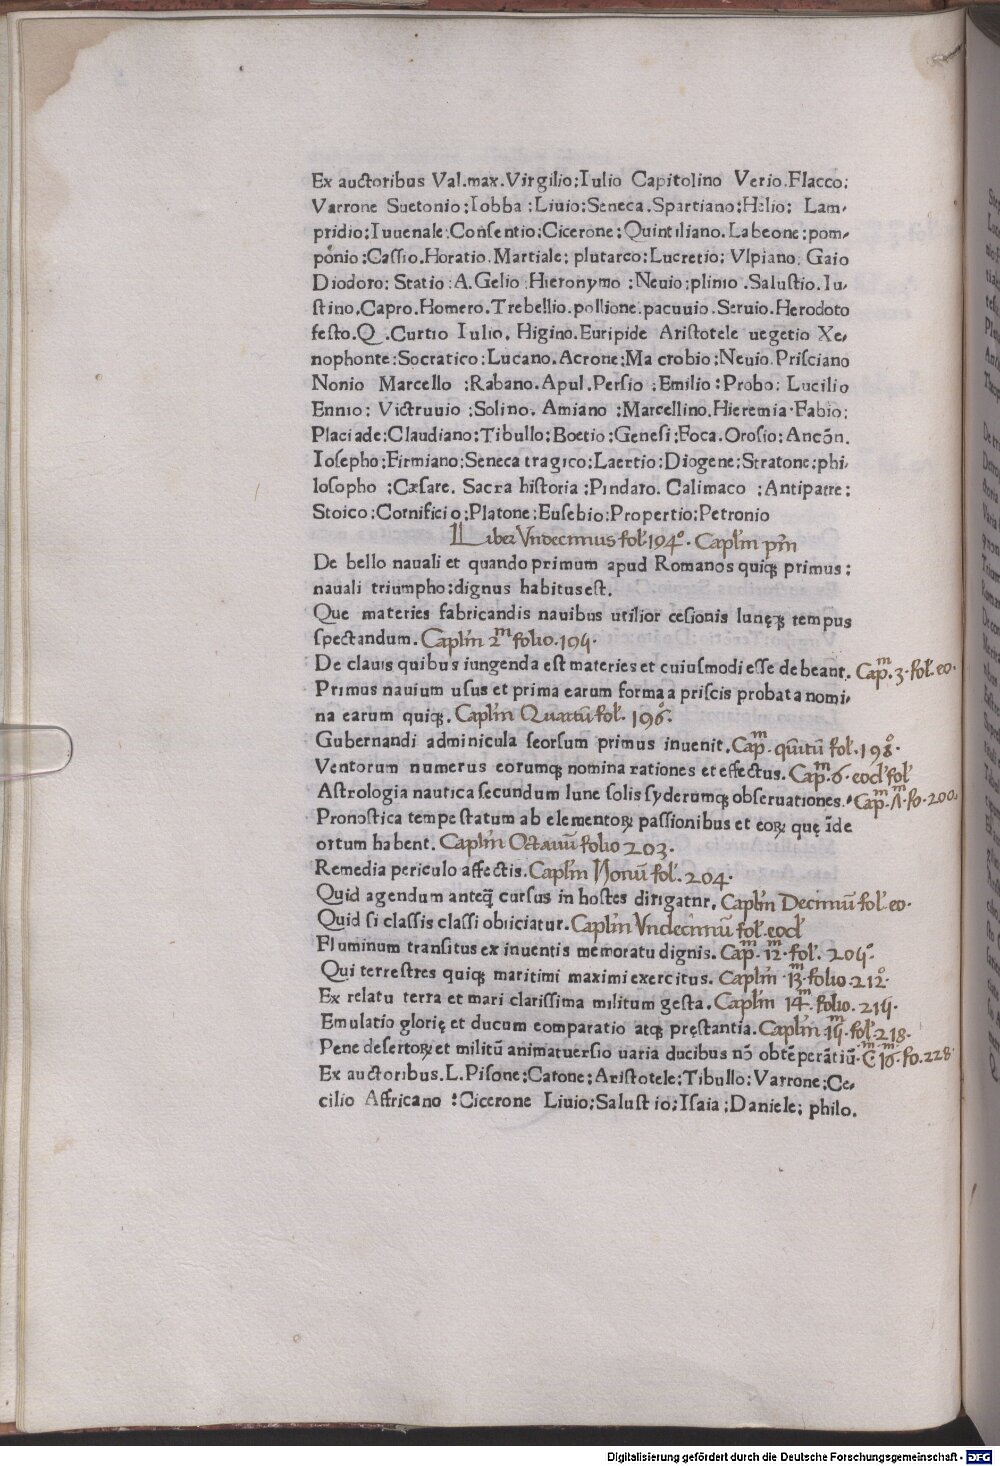 Ex auctoribus Val.max.Virgilio:Iulio Capitolino Verio.Flacco:
Varrone Suetonio:Iobba :Liuio:Seneca.Spartiano:Helio: Lam-
pridio:Iuuenale:Consentio:Cicerone:Quintiliano.Labeone:pom-
ponio:Cassio.Horatio.Martiale: plutarco:Lucretio: Vlpiano: Gaio
Diodoro: Statio :A.Gelio :Hieronymo :Neuio:plinio .Salustio.Iu-
stino.Capro.Homero.Trebellio.pollione.pacuuio.Seruio.Herodoto
festo.Q .Curtio Iulio. Higino.Euripide Aristotele uegetio Xe-
nophonte:Socratico:Lucano.Acrone:Ma crobio:Neuio.Prisciano
Nonio Marcello :Rabano.Apul.Persio :Emilio:Probo: Lucilio
Ennio: Victruuio :Solino. Amiano :Marcellino.Hieremia.Fabio:
Placiade:Claudiano:Tibullo:Boetio:Genesi:Foca.Orosio:Ancōn.
Iosepho:Firmiano:Seneca tragico:Laertio:Diogene:Stratone:phi-
losopho :Cæsare. Sacra historia :Pindaro. Calimaco :Antipatre:
Stoico:Cornificio:Platone:Eusebio:Propertio:Petronio
Liber Vndecimus fol. 194º. Caplm pm
De bello nauali et quando primum apud Romanos quiqꝫ primus:
nauali triumpho:dignus habitus est.
Que materies fabricandis nauibus utilior cesionis lunęqꝫ tempus
spectandum. Caplm 2m folio.194.
De clauis quibus iungenda est materies et cuiusmodi esse debeant. Cap.m 3. fol. eo.
Primus nauium usus et prima earum forma a priscis probata nomi-
na earum quiqꝫ. Caplm Quartū fol. 196º.
Gubernandi adminicula seorsum primus inuenit. Cap.m quītū fol. 198º.
Ventorum numerus eorumqꝫ nomina rationes et effectus. Cap.m 6. eod fol
Astrologia nautica secundum lune solis syderumqꝫ obseruationes. Cap.m Λm fo. 200.
Pronostica tempestatum ab elementoꝝ passionibus et eoꝝ quę īde
ortum habent. Caplm Octauū folio 203.
Remedia periculo affectis. Caplm Nonū fol. 204.
Quid agendum anteq̄ cursus in hostes dirigatnr. Caplm Decimū fol. eo.
Quid si classis classi obiiciatur. Caplm Vndecimū fol. eod
Fluminum transitus ex inuentis memoratu dignis. Cap.m 12m. fol. 204º.
Qui terrestres quiqꝫ maritimi maximi exercitus. Caplm 13m folio 212º
Ex relatu terra et mari clarissima militum gesta. Caplm 14m. folio. 214.
Emulatio glorię et ducum eomparatio atqꝫ pręstantia. Caplm 14m. fol. 218.
Pene desertoꝝ et militū animatuersio uaria ducibus nō obtēperātiū. C.m 16m. fo. 228
Ex auctoribus.L.Pisone:Catone:Aristotele:Tibullo:Varrone:Ce-
cilio Affricano :Cicerone Liuio:Salustio:Isaia:Daniele: philo.
Digitalisierung gefördert durch die Deutsche Forschungsgemeinschaft - DFG